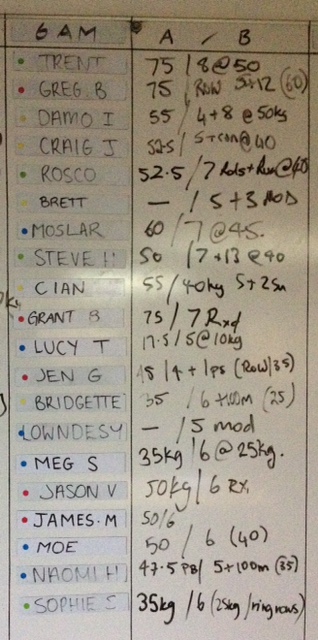 6 AM A / B
TRENT 75 / 8 @ 50
GREG. B 75 / ROW 5+12 (60)
DAMO I 55 / 4+8 @ 50kg
CRAIG J 52.5 / 5+ @ 40
ROSCO 52.5 / 7 + Run @ 40
BRETT — / 5+3 MOD
MOSLAR 60 / 7 @ 45.
STEVE H 50 / 7+13 @ 40
CIAN 55 / 40kg 5+2
GRANT B 75 / 7 Rxd
LUCY T 17.5 / 5 @ 10kg
JEN G / 4+1 (Row/35)
BRIDGETTE 35 / 6+100m (25)
LOWNDESY — / 5 mod
MEG S 35kg / 6 @ 25kg.
JASON V 50kg / 6 RX
JAMES.M 50/6
MOE 50 / 6 (40)
NAOMI H 47.5 PB / 5+100m (35)
SOPHIE S 35kg / 6 (25kg / ring rows)